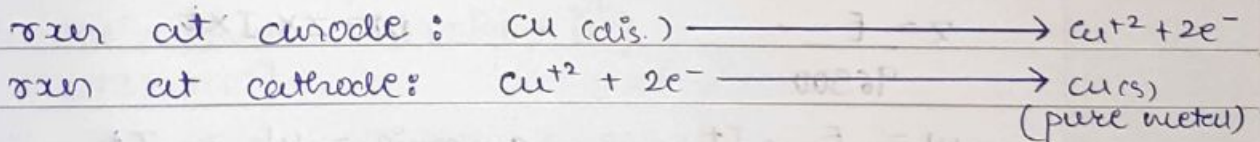 rxn at anode : Cu (dis.) ⟶ Cu⁺² + 2e⁻
rxn at cathode : Cu⁺² + 2e⁻ ⟶ Cu(s)
(pure metal)